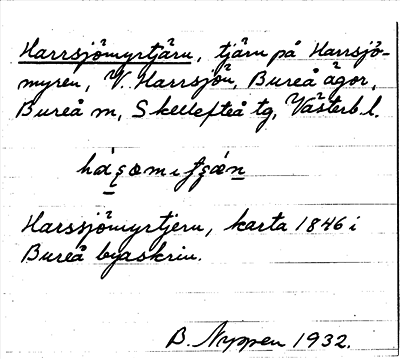 Harrsjömyrtjärn, tjärn på Harrsjö-
myren, V. Harrsjön, Bureå ägor,
Bureå m, Skellefteå tg, Västerb.l.
Harssjömyrtjern, karta 1846 i
Bureå byaskrin.
B. Nyppen 1932.